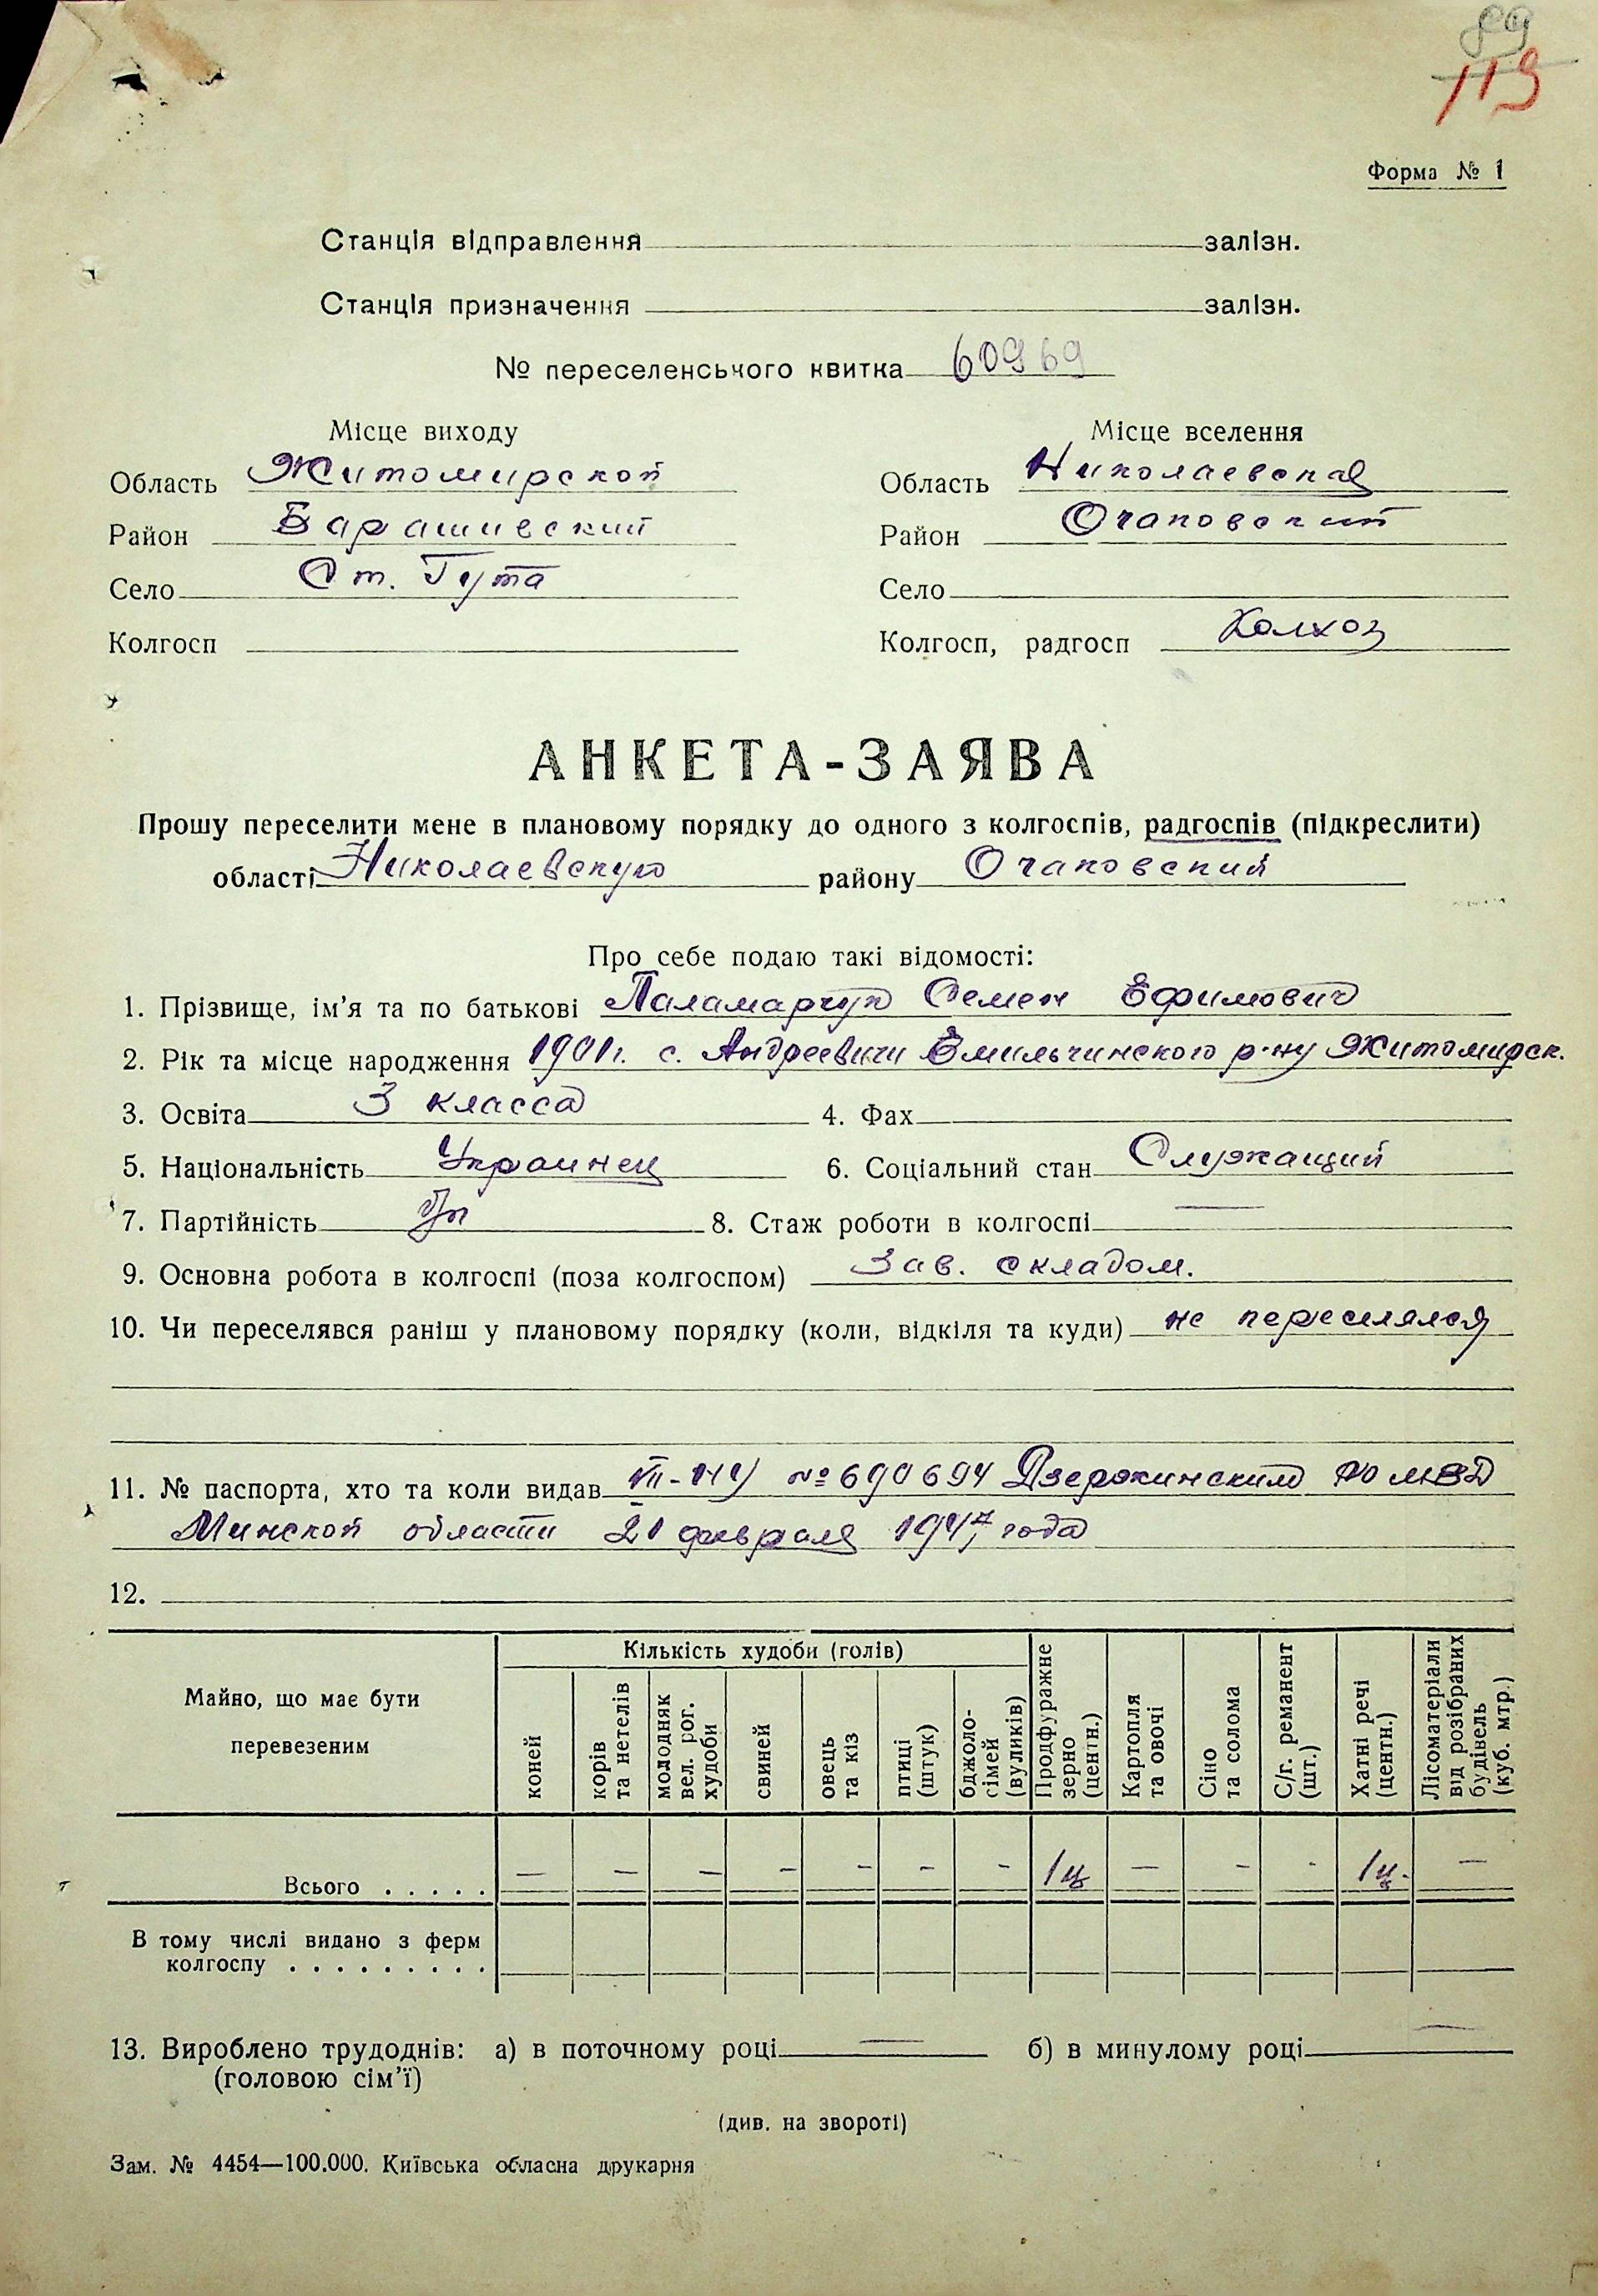 89
119
Форма № 1
Станція відправлення залізн.
Станція призначення залізн.
№ переселенського квитка 60969
Місце виходу Місце вселення
Область Житомирской Область Николаевская
Район Барашивский Район Очаковский
Село Ст. Гута Село
Колгосп Колгосп, радгосп Колхоз
АНКЕТА-ЗАЯВА
Прошу переселити мене в плановому порядку до одного з колгоспів, радгоспів (підкреслити)
області Николаевскую району Очаковский
Про себе подаю такі відомості:
1. Прізвище, ім'я та по батькові Паламарчук Семен Ефимович
2. Рік та місце народження 1901г. с. Андреевичи Емильчинского р-ну Житомирск.
3. Освіта 3 класса 4. Фах
5. Національність Украинец 6. Соціальний стан Служащий
7. Партійність 8. Стаж роботи в колгоспі —
9. Основна робота в колгоспі (поза колгоспом) Зав. складом.
10. Чи переселявся раніш у плановому порядку (коли, відкіля та куди) не переселялся
11. № паспорта, хто та коли видав VII-НУ № 690694 Дзержинским РО МВД
Минской области 21 февраля 1947 года
12.
Майно, що має бути перевезеним
Кількість худоби (голів)
коней
корів та нетелів
молодняк вел. рог. худоби
свиней
овець та кіз
птиці (штук)
бджоло-сімей (вуликів)
Продфуражне зерно (центн.)
Картопля та овочі
Сіно та солома
С/г. реманент (шт.)
Хатні речі (центн.)
Лісоматеріали від розібраних будівель (куб. мтр.)
Всього . . . . . — — — — — — — 1ц — — - 1ц. —
В тому числі видано з ферм
колгоспу . . . . . . . . .
13. Вироблено трудоднів: а) в поточному році — б) в минулому році —
(головою сім'ї)
(див. на звороті)
Зам. № 4454—100.000. Київська обласна друкарня